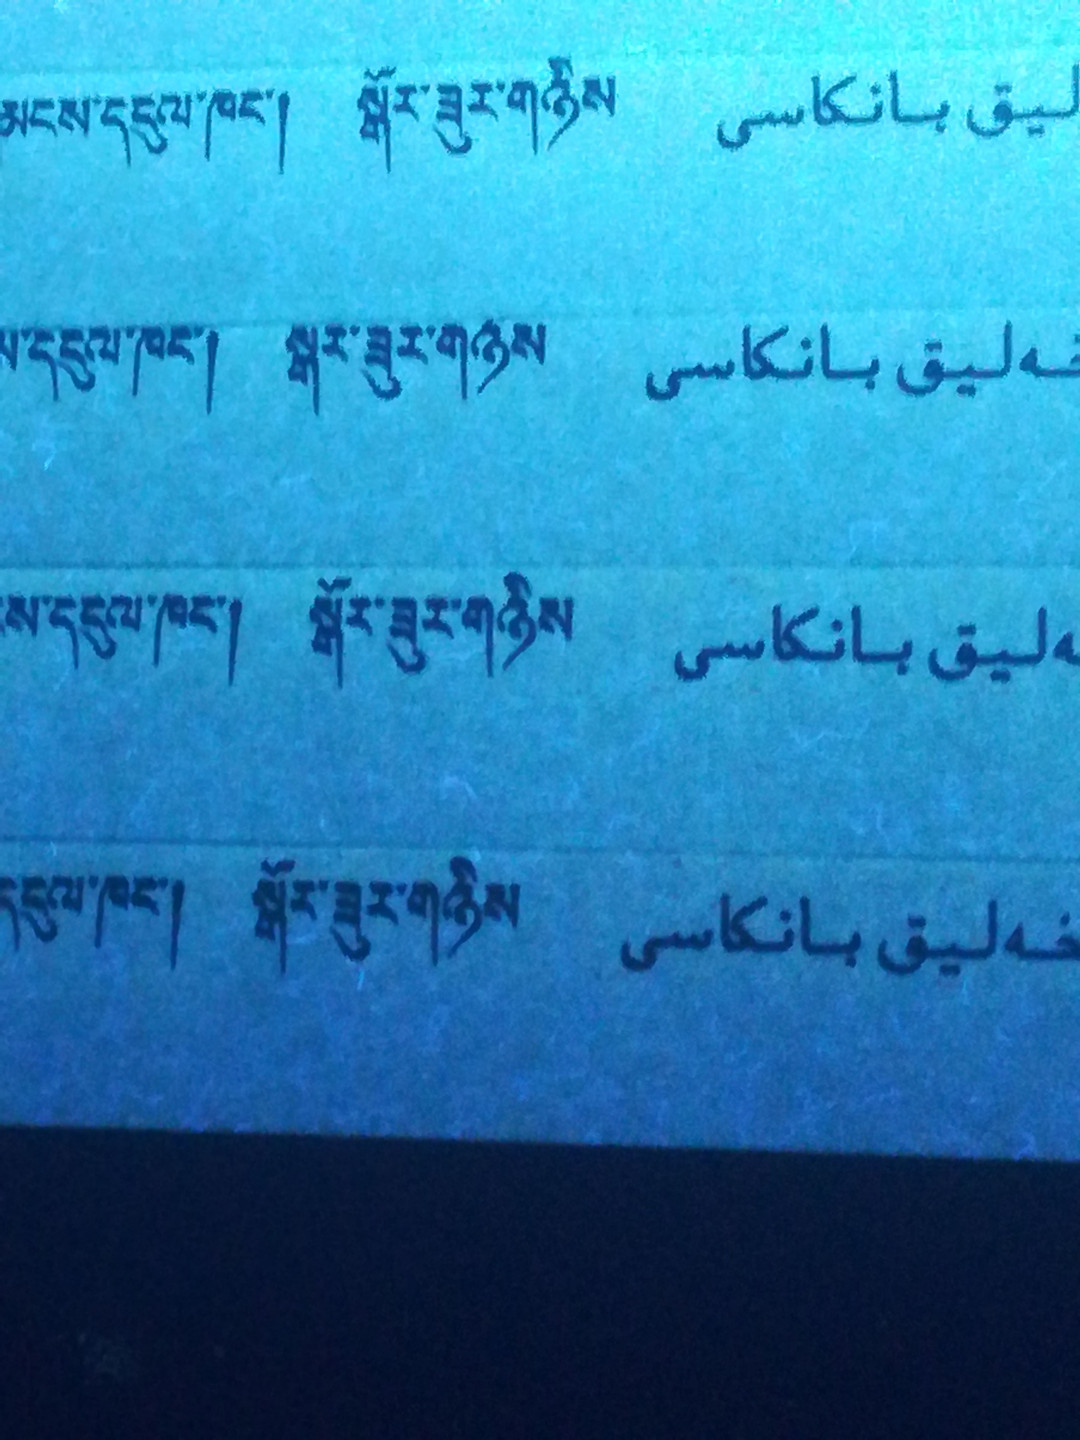 མངས་དངུལ་ཁང་། སྒོར་ཟུར་གཉིས لىق بانكاسى
ས་དངུལ་ཁང་། སྒར་ཟུར་གཉས خەلىق بانكاسى
ས་དངུལ་ཁང་། སྒོར་ཟུར་གཉིས ەلىق بانكاسى
དངུལ་ཁང་། སྒོར་ཟུར་གཉིས خەلىق بانكاسى